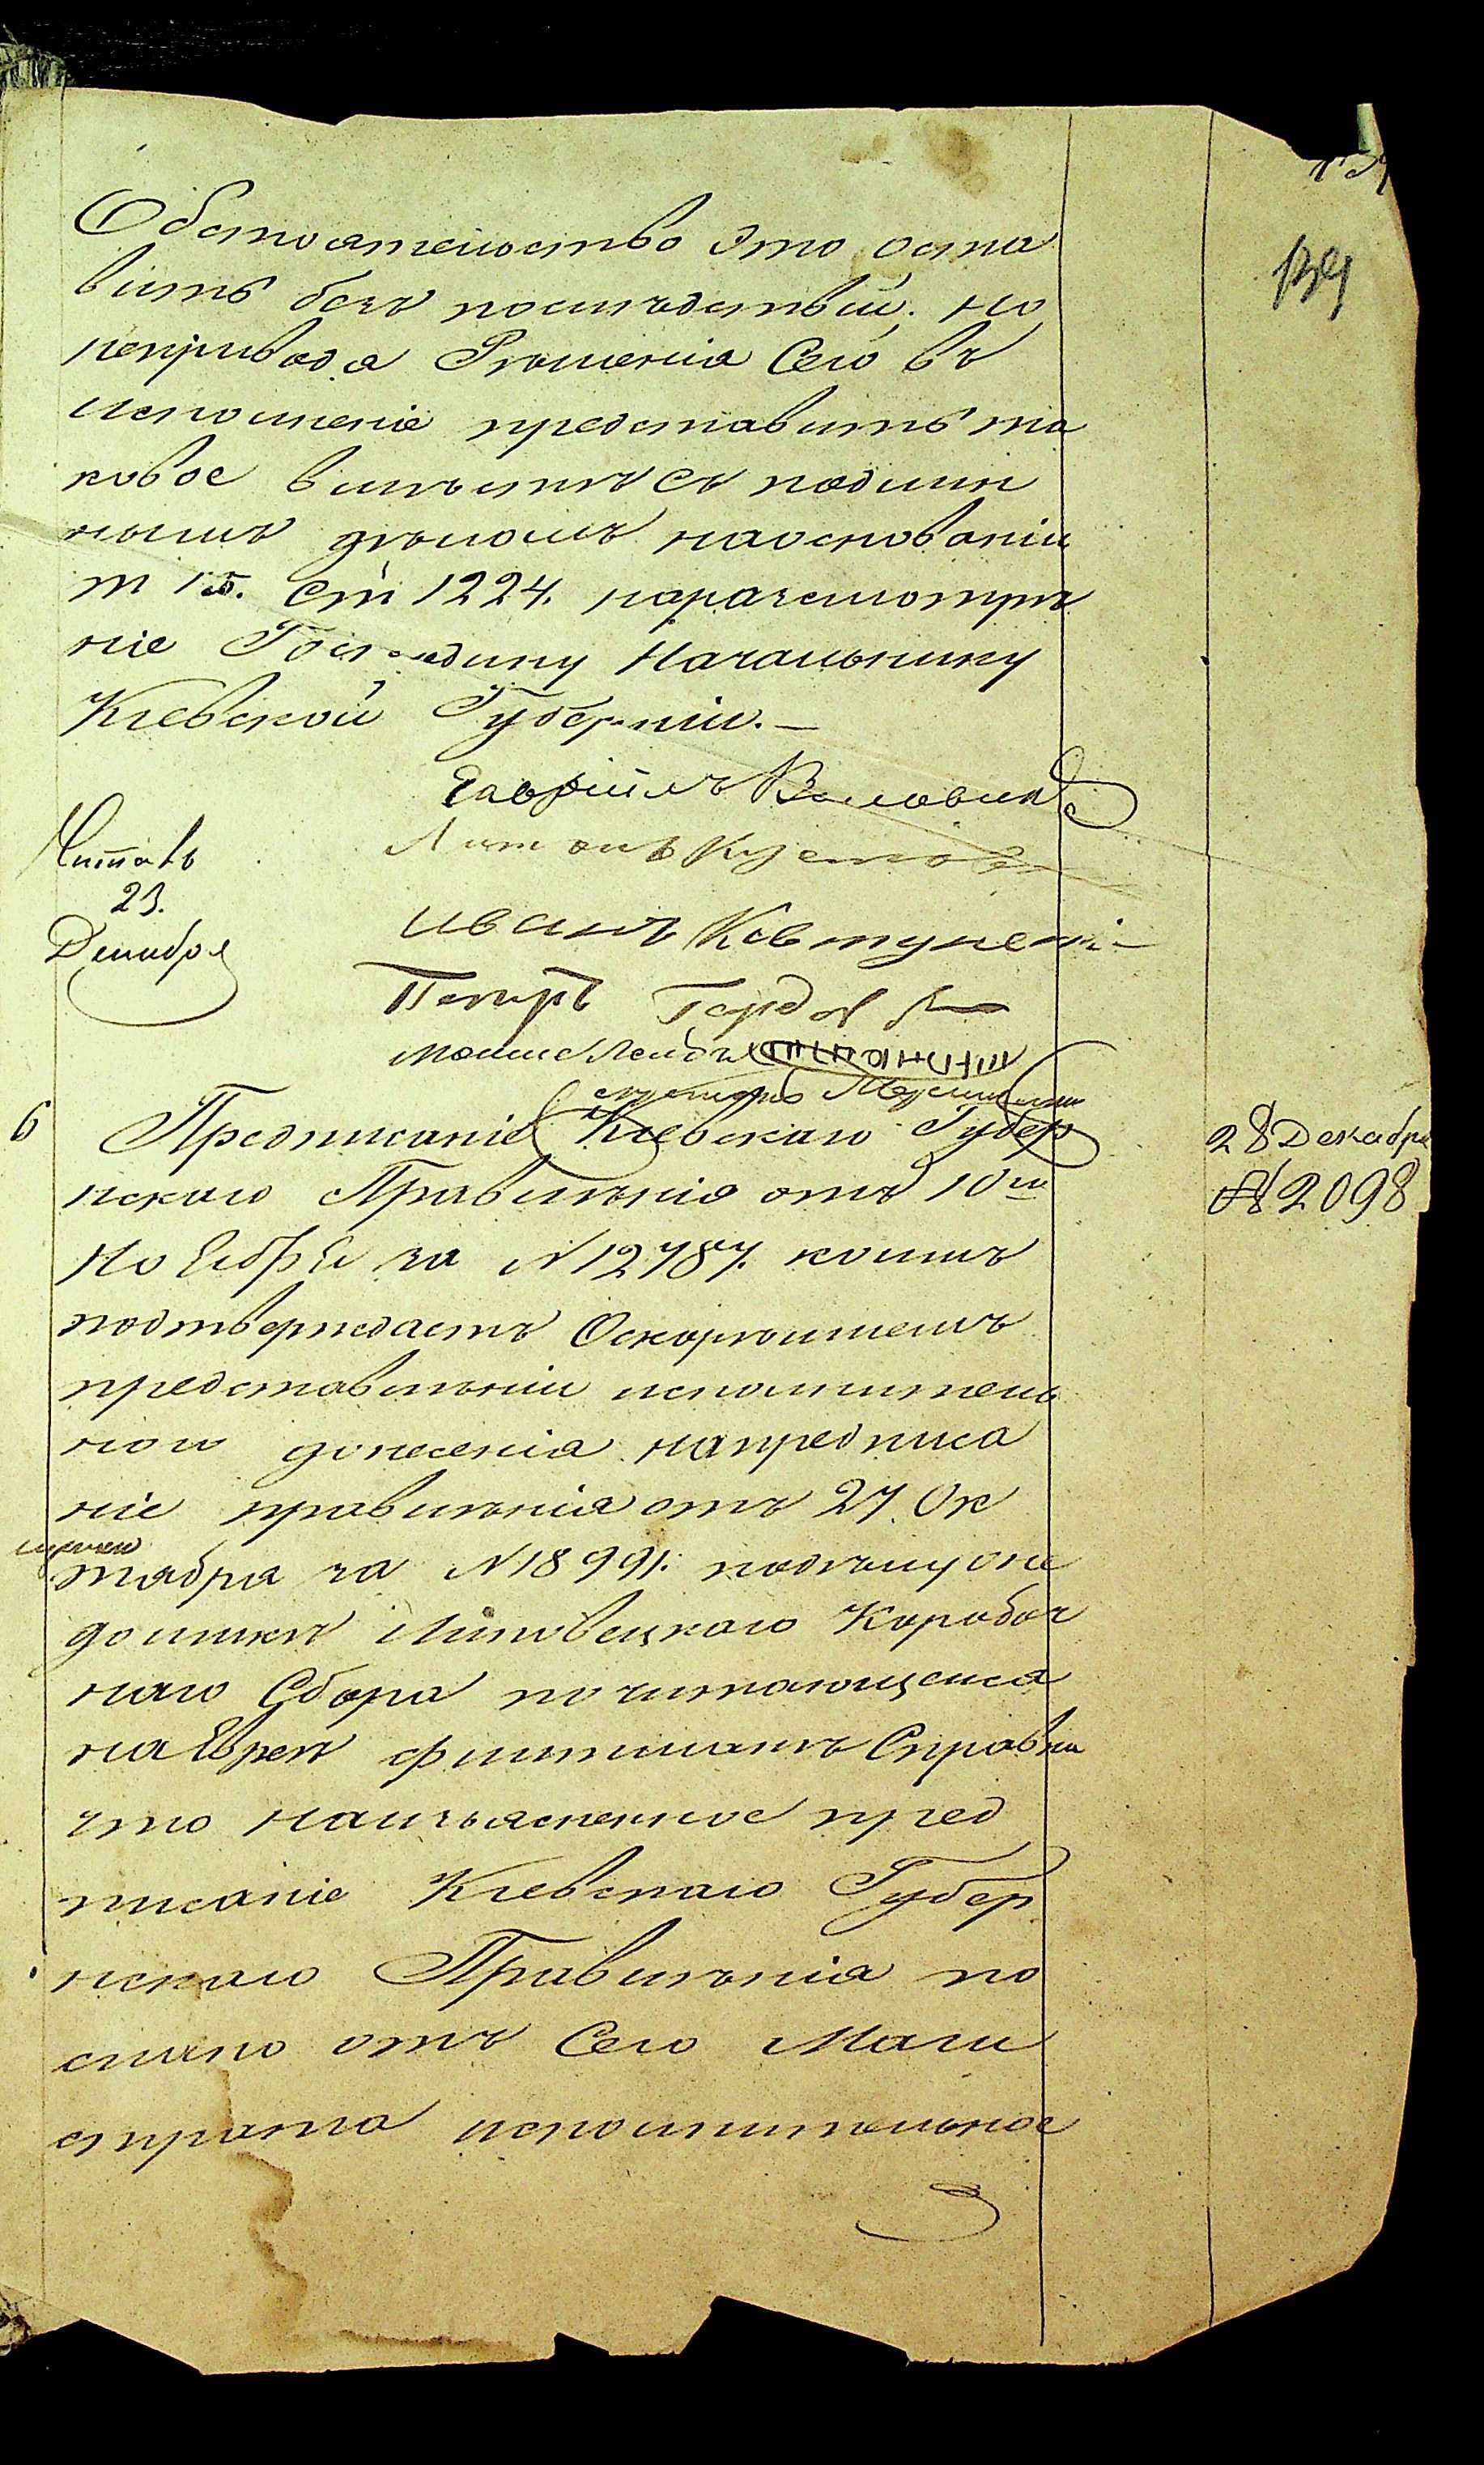 139
Обстоятельство это оста
вить безъ последствий. но
неприводя Решенія Сего въ
исполненіе представить та
ковое вместе съ подлин
нымъ деломъ наоснованіи
т 15. ст 1224. наразсмотре
ніе Господину Начальнику
Кіевской Губерніи.—
Гавріилъ
Антонъ
Читалъ
23.
Декабря
Иванъ Ковтуненко
Петръ
Мошко Лейбъ
6 Предписаніе Кіевскаго Губер
28 Декабря
№ 2098
нскаго Правленія отъ 10го
Ноября за №12787. коимъ
подтверждаетъ Оскорейшемъ
представленіи исполнитель
ного донесенія напредписа
ніе правленія отъ 27 Ок
тября за №18991. поделу оне
доимке Липовецкаго Коробоч
наго Сбора почитающейся
наЕврее Справка
что наизъясненное пред
писаніе Кіевскаго Губер
нскаго Правленія по
слано отъ Сего Маги
страта исполнительное